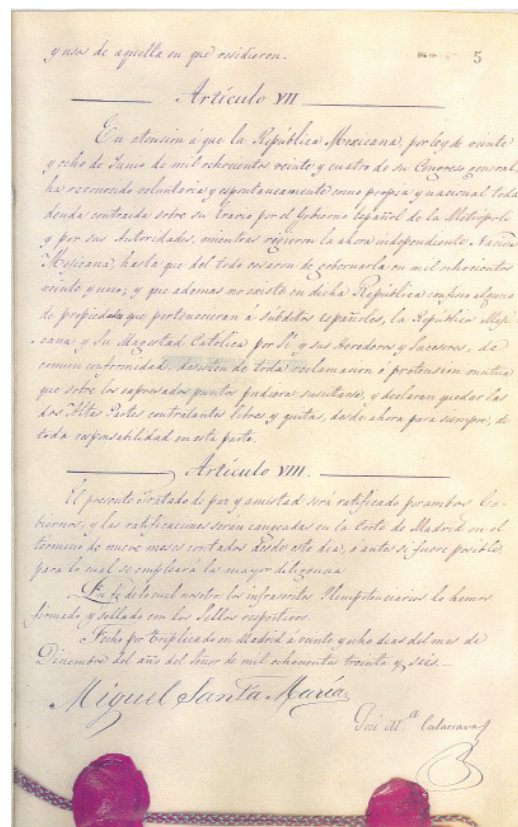 y usos de aquella en que residieren.
5
Artículo VII
En atencion á que la República Mexicana, por ley de veinte
y ocho de Junio de mil ochocientos veinte y cuatro de su Congreso general,
ha reconocido voluntaria y espontaneamente como propia y nacional toda
deuda contraida sobre su Erario por el Gobierno español de la Metrópoli
y por sus Autoridades, mientras rigieron la ahora independiente Nacion
Mexicana, hasta que del todo cesaron de gobernarla en mil ochocientos
veinte y uno; y que ademas no existe en dicha República confisco alguno
de propiedades que pertenecieran á súbditos españoles, la República Meji
cana y Su Magestad Católica por Sí y sus Herederos y Sucesores, de
comun conformidad, desisten de toda reclamacion ó pretension mutua
que sobre los espresados puntos pudiera suscitarse, y declaran quedar las
dos Altas Partes contratantes libres y quitas, desde ahora para siempre, de
toda responsabilidad en esta parte.
Artículo VIII.
El presente Tratado de paz y amistad será ratificado por ambos Go-
biernos, y las ratificaciones seran cangeadas en la Corte de Madrid en el
término de nueve meses contados desde este dia, ó antes si fuere posible,
para lo cual se empleará la mayor diligencia
En fé de lo cual nosotros los infrascritos Plenipotenciarios lo hemos
firmado y sellado con los Sellos respectivos.
Fecho por triplicado en Madrid á veinte y ocho dias del mes de
Diciembre del año del Señor de mil ochocientos treinta y seis.—
Miguel Santa María
José M.ª Calatrava